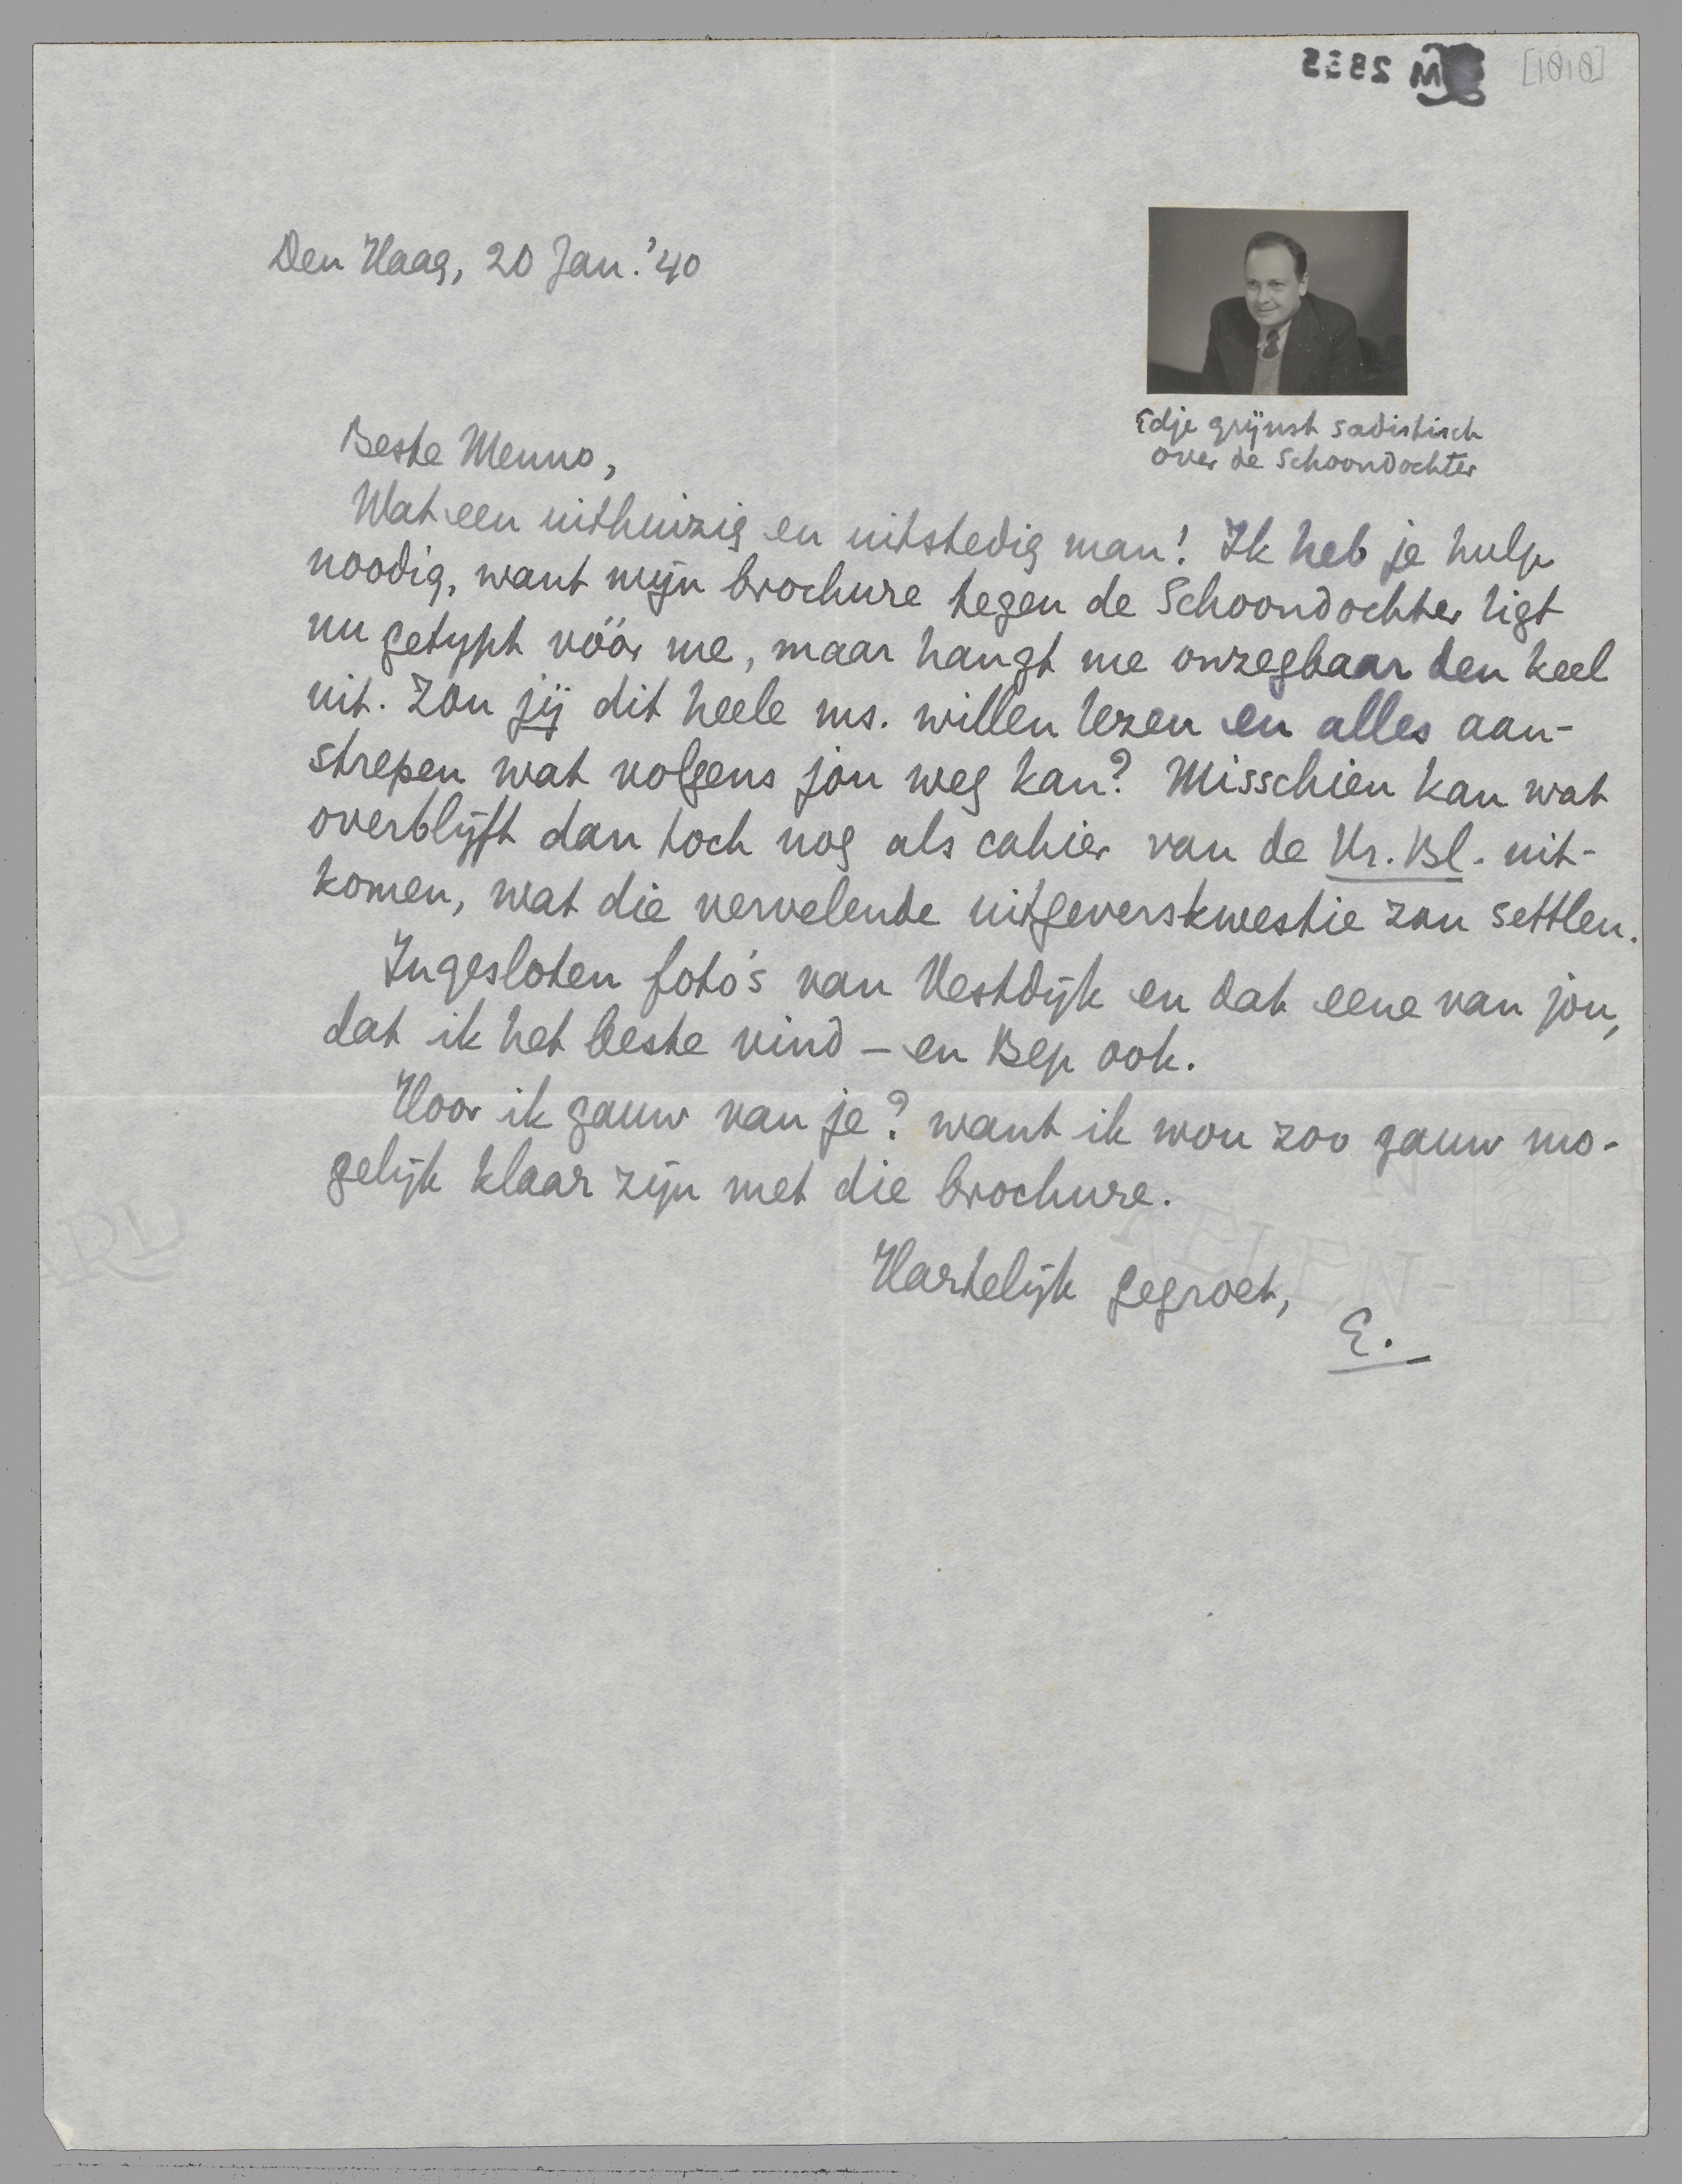 [1818]
Den Haag, 20 Jan. '40
Edje grijnst sadistisch
over de Schoondochter
Beste Menno,
Wat een uithuizig en uitstedig man! Ik heb je hulp
noodig, want mijn brochure tegen de Schoondochter ligt
nu getypt vóór me, maar hangt me onzegbaar den keel
uit. Zou jij dit heele ms. willen lezen en alles aan-
strepen wat volgens jou weg kan? Misschien kan wat
overblijft dan toch nog als cahier van de Vr. Bl. uit-
komen, wat die vervelende uitgeverskwestie zou settlen.
Ingesloten foto's van Vestdijk en dat eene van jou,
dat ik het beste vind – en Bep ook.
Hoor ik gauw van je? want ik wou zoo gauw mo-
gelijk klaar zijn met die brochure.
Hartelijk gegroet,
E.